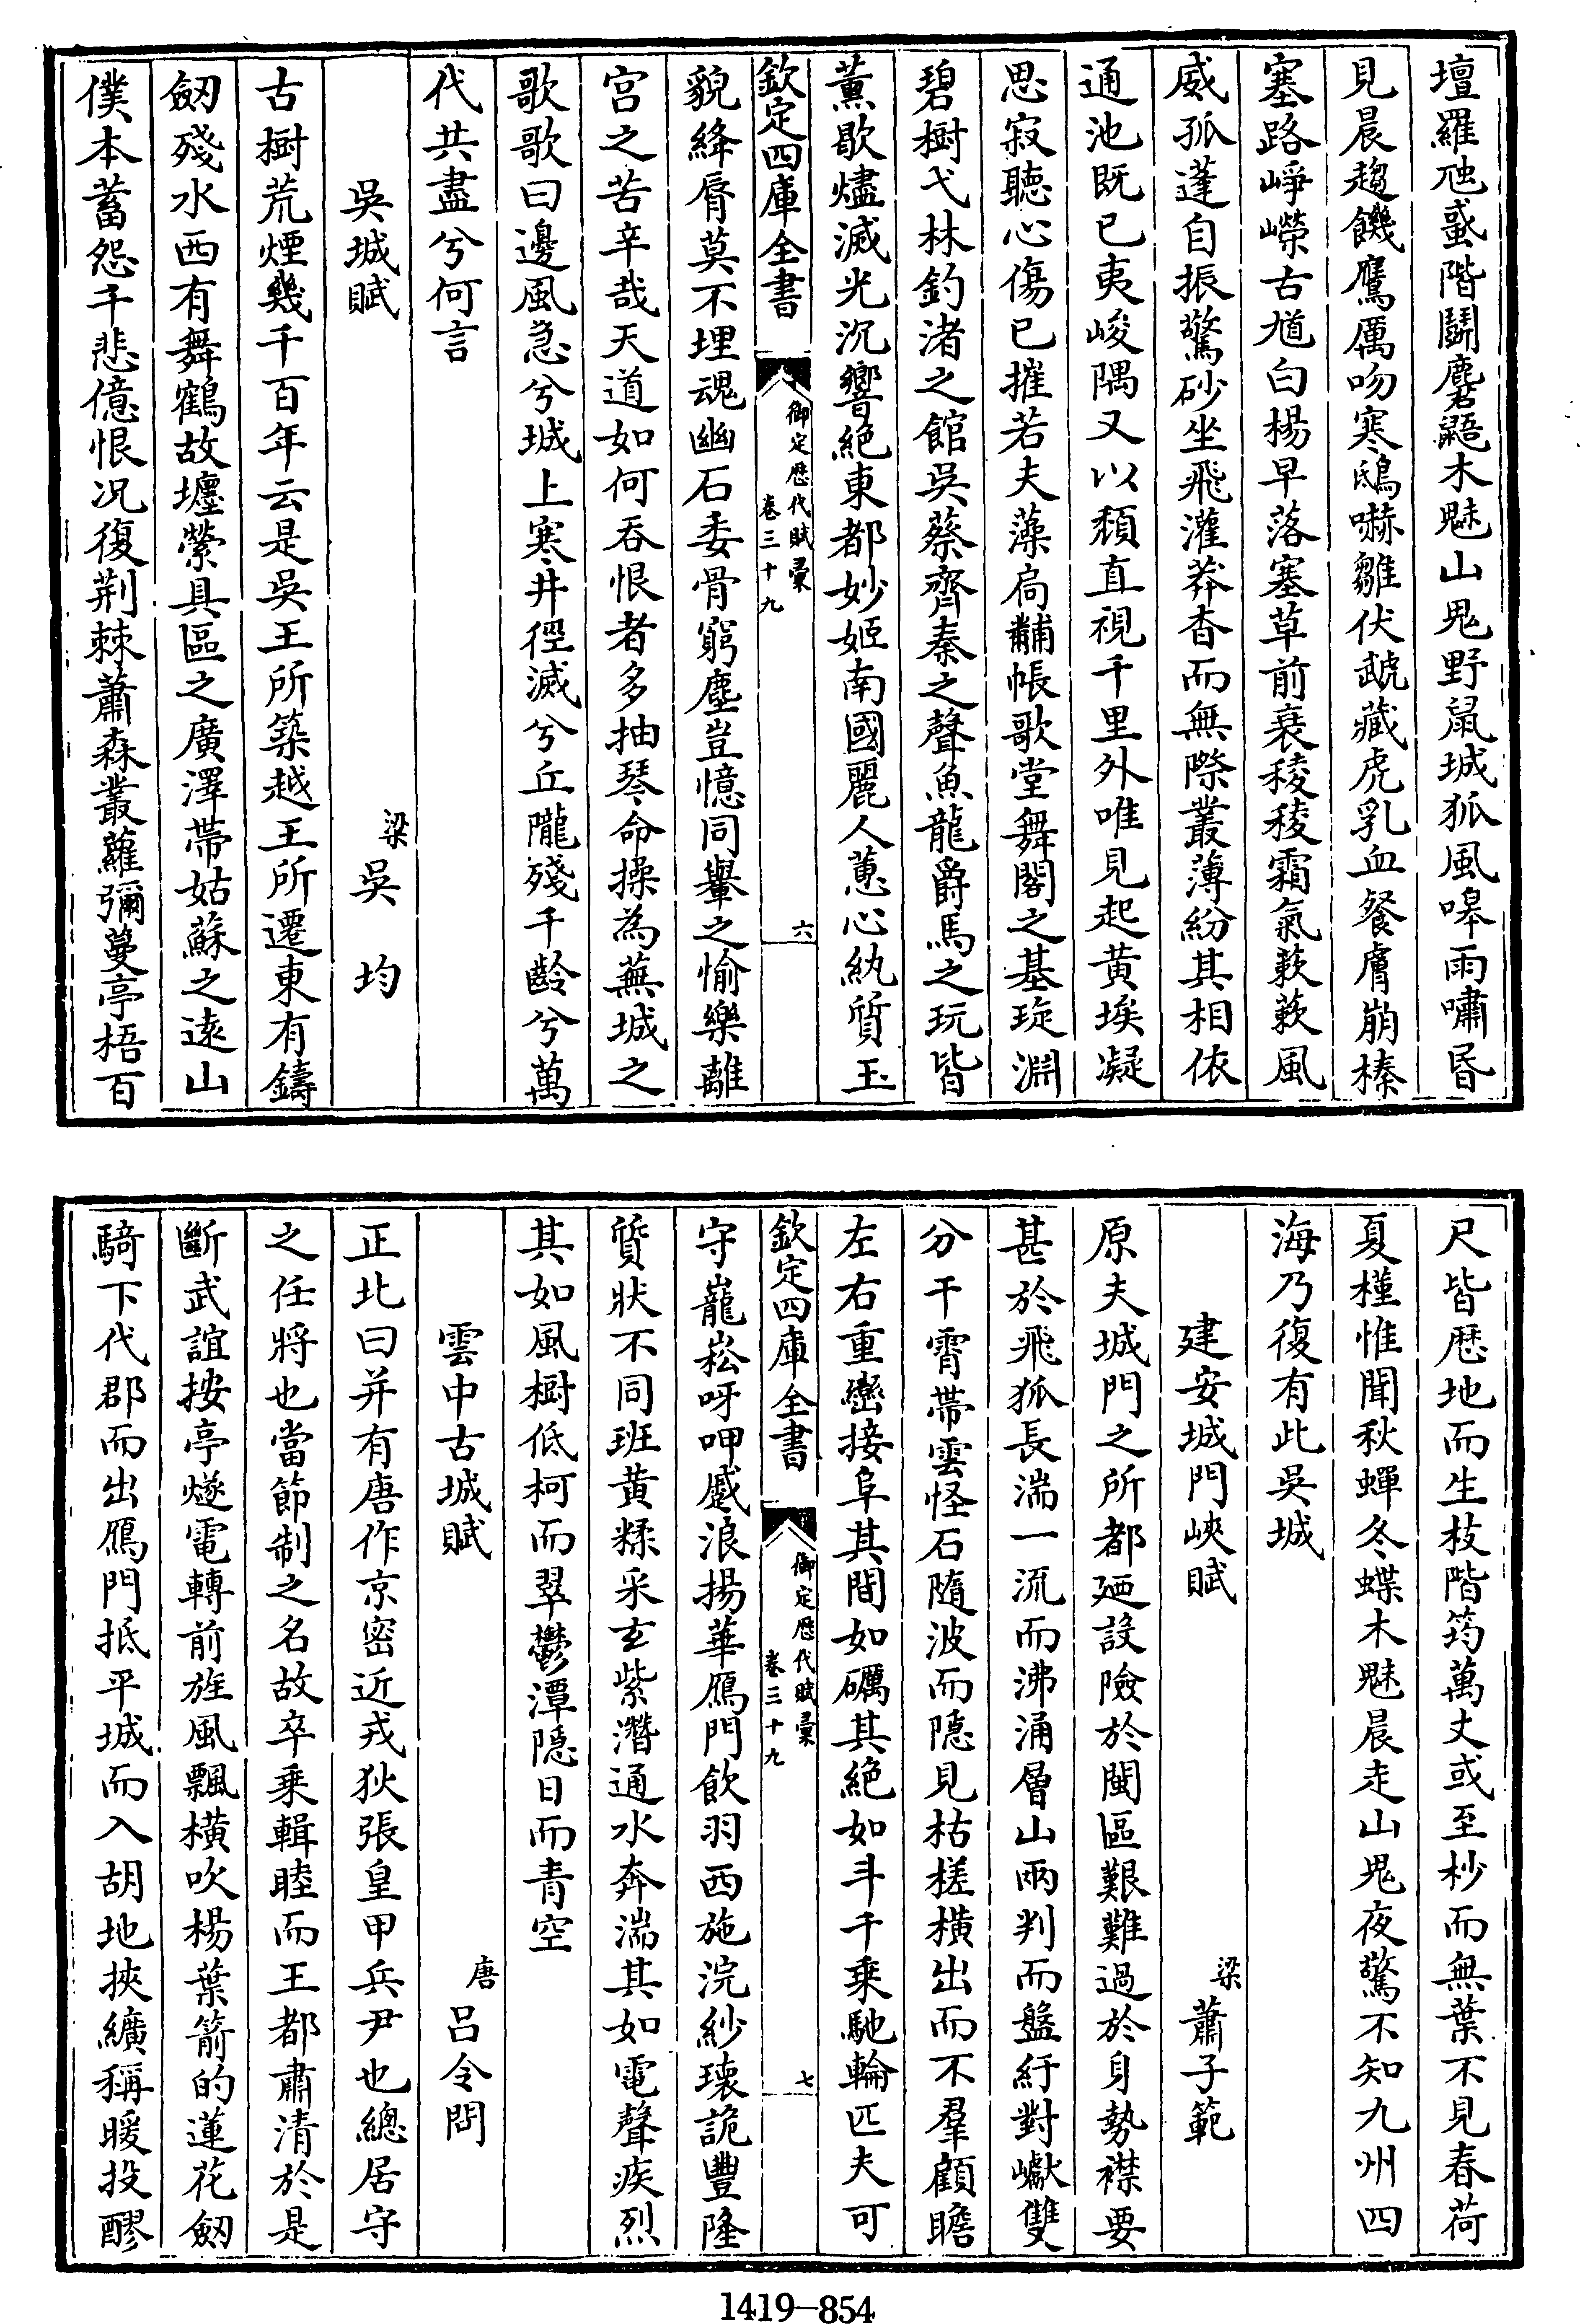 壇羅虺蜮階鬭麏鼯木魅山鬼野鼠城狐風嘷雨嘯昏
見晨趨饑鷹厲吻寒鴟嚇雛伏虣藏虎乳血餐膚崩榛
塞路崢嶸古馗白楊早落塞草前衰稜稜霜氣蔌蔌風
威孤蓬自振驚砂坐飛灌莽杳而無際叢薄紛其相依
通池既已夷峻隅又以頽直視千里外唯見起黄埃凝
思寂聽心傷已摧若夫藻扃黼帳歌堂舞閣之基琁淵
碧樹弋林釣渚之館吳蔡齊秦之聲魚龍爵馬之玩皆
薰歇燼滅光沉響絶東都妙姬南國麗人蕙心紈質玉
欽定四庫全書
御定歴代賦彙
卷三十九
六
貌絳脣莫不埋魂幽石委骨窮塵豈憶同轝之愉樂離
宫之苦辛哉天道如何吞恨者多抽琴命操為蕪城之
歌歌曰邊風急兮城上寒井徑滅兮丘隴殘千齡兮萬
代共盡兮何言
吳城賦
梁吳均
古樹荒煙幾千百年云是吳王所築越王所遷東有鑄
劒殘水西有舞鶴故㕓縈具區之廣澤帶姑蘇之遠山
僕本蓄怨千悲億恨况復荆棘蕭森叢蘿彌蔓亭梧百
尺皆歴地而生枝階筠萬丈或至杪而無葉不見春荷
夏槿惟聞秋蟬冬蝶木魅晨走山鬼夜驚不知九州四
海乃復有此吳城
建安城門峽賦
梁蕭子範
原夫城門之所都廼設險於閩區艱難過於身勢襟要
甚於飛狐長湍一流而沸涌層山兩判而盤紆對巘雙
分干霄帶雲怪石隨波而隠見枯槎横出而不羣顧瞻
左右重巒接阜其間如礪其絶如斗千乗馳輪匹夫可
欽定四庫全書
御定歴代賦彙
卷三十九
七
守巃嵸呀呷蹙浪揚華鴈門飲羽西施浣紗瓌詭豐隆
質狀不同班黄糅采玄紫潛通水奔湍其如電聲疾烈
其如風樹低柯而翠鬱潭隠日而青空
雲中古城賦
唐吕令問
正北曰并有唐作京密近戎狄張皇甲兵尹也總居守
之任將也當節制之名故卒乗輯睦而王都肅清於是
斷武誼按亭燧電轉前旌風飄横吹楊葉箭的蓮花劒
騎下代郡而出鴈門抵平城而入胡地挾纊稱暖投醪
1419—854